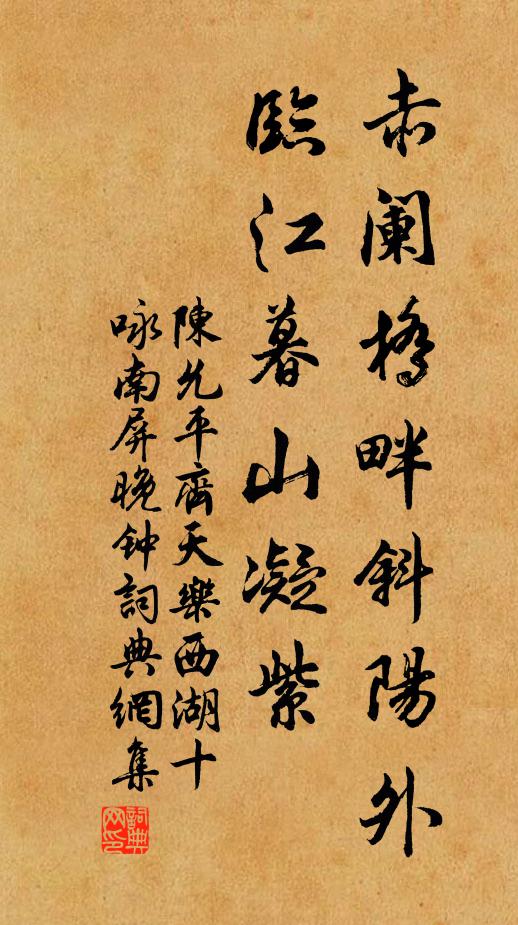 赤阑橋畔斜陽外
臨江暮山凝紫
陳允平齊天樂西湖十
咏南屏晚钟詞典網集
詞典
网印